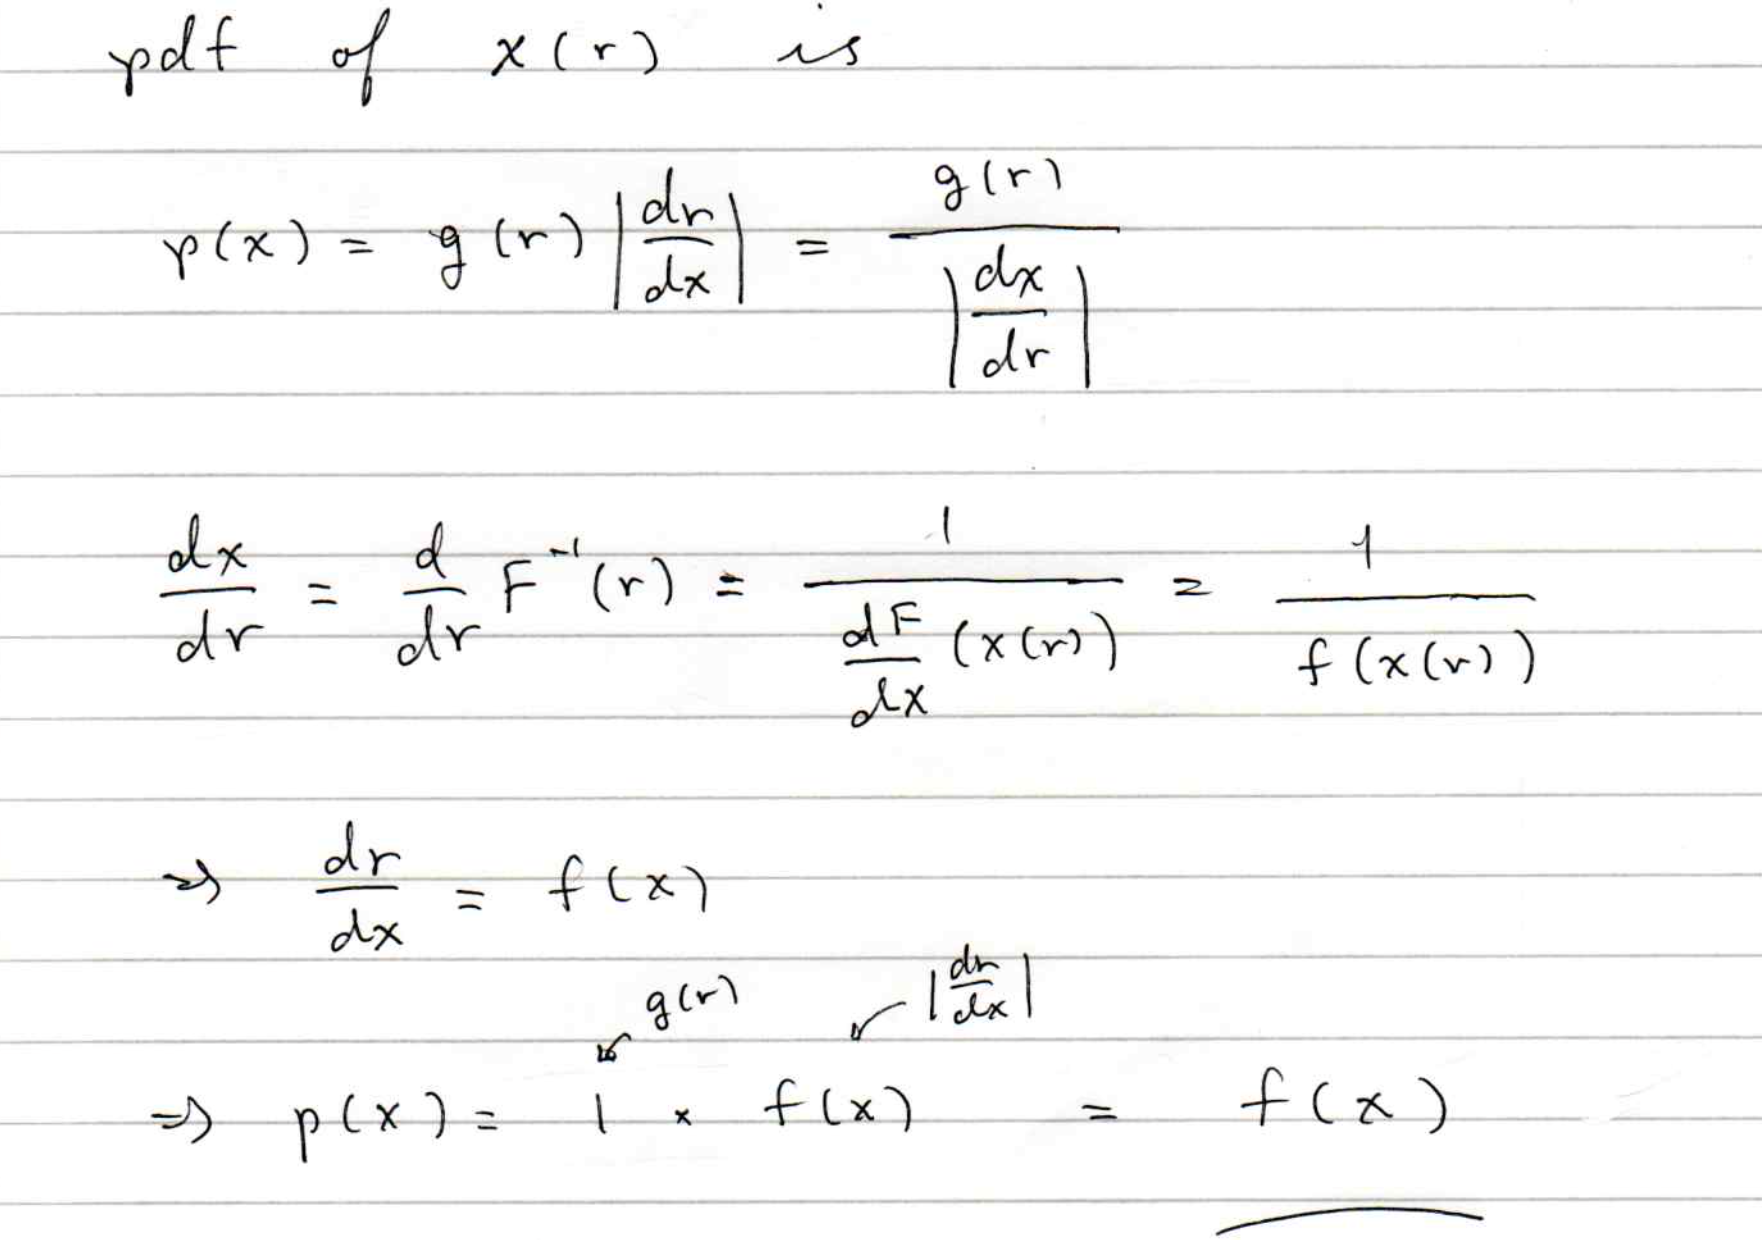 pdf of x(r) is
p(x) = g(r) |dr/dx| = g(r) / |dx/dr|
dx/dr = d/dr F⁻¹(r) = 1 / (dF/dx (x(r))) = 1 / f(x(r))
⇒ dr/dx = f(x)
g(r) |dr/dx|
⇒ p(x) = 1 × f(x) = f(x)